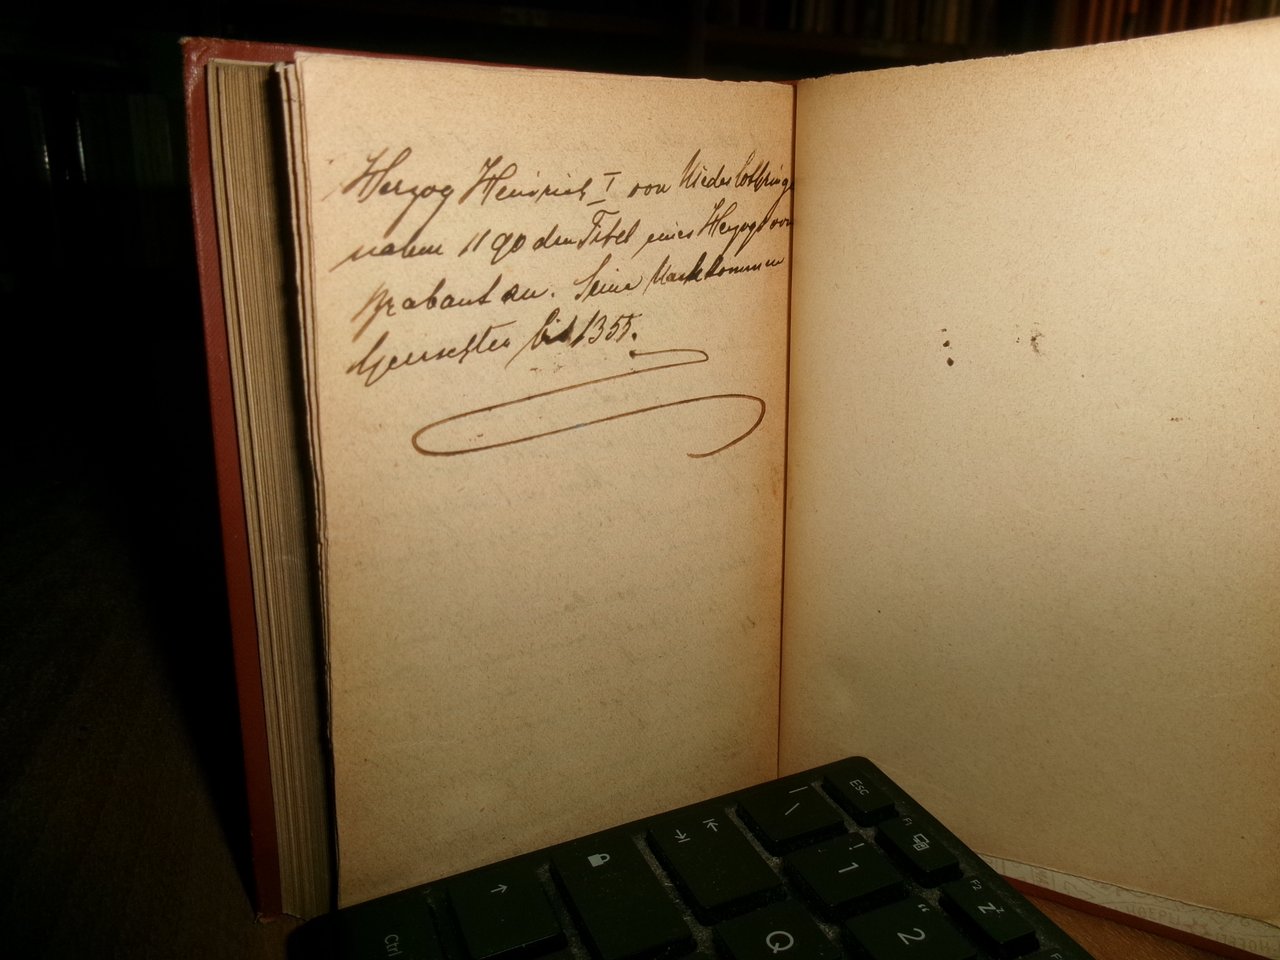 Herzog Heinrich I von Niederlothring
nahm 1190 den Titel eines Herzogs von
Brabant an. Seine Nachkommen
herrschten bis 1355.
Esc
F1
| \
! 1
F2
Zz
" 2
Q
Ctrl